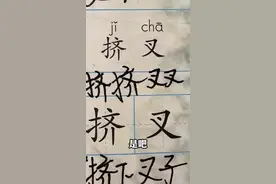 jǐ chā
挤 叉
挤挤叉又
挤 叉
是吧
挤下叉子